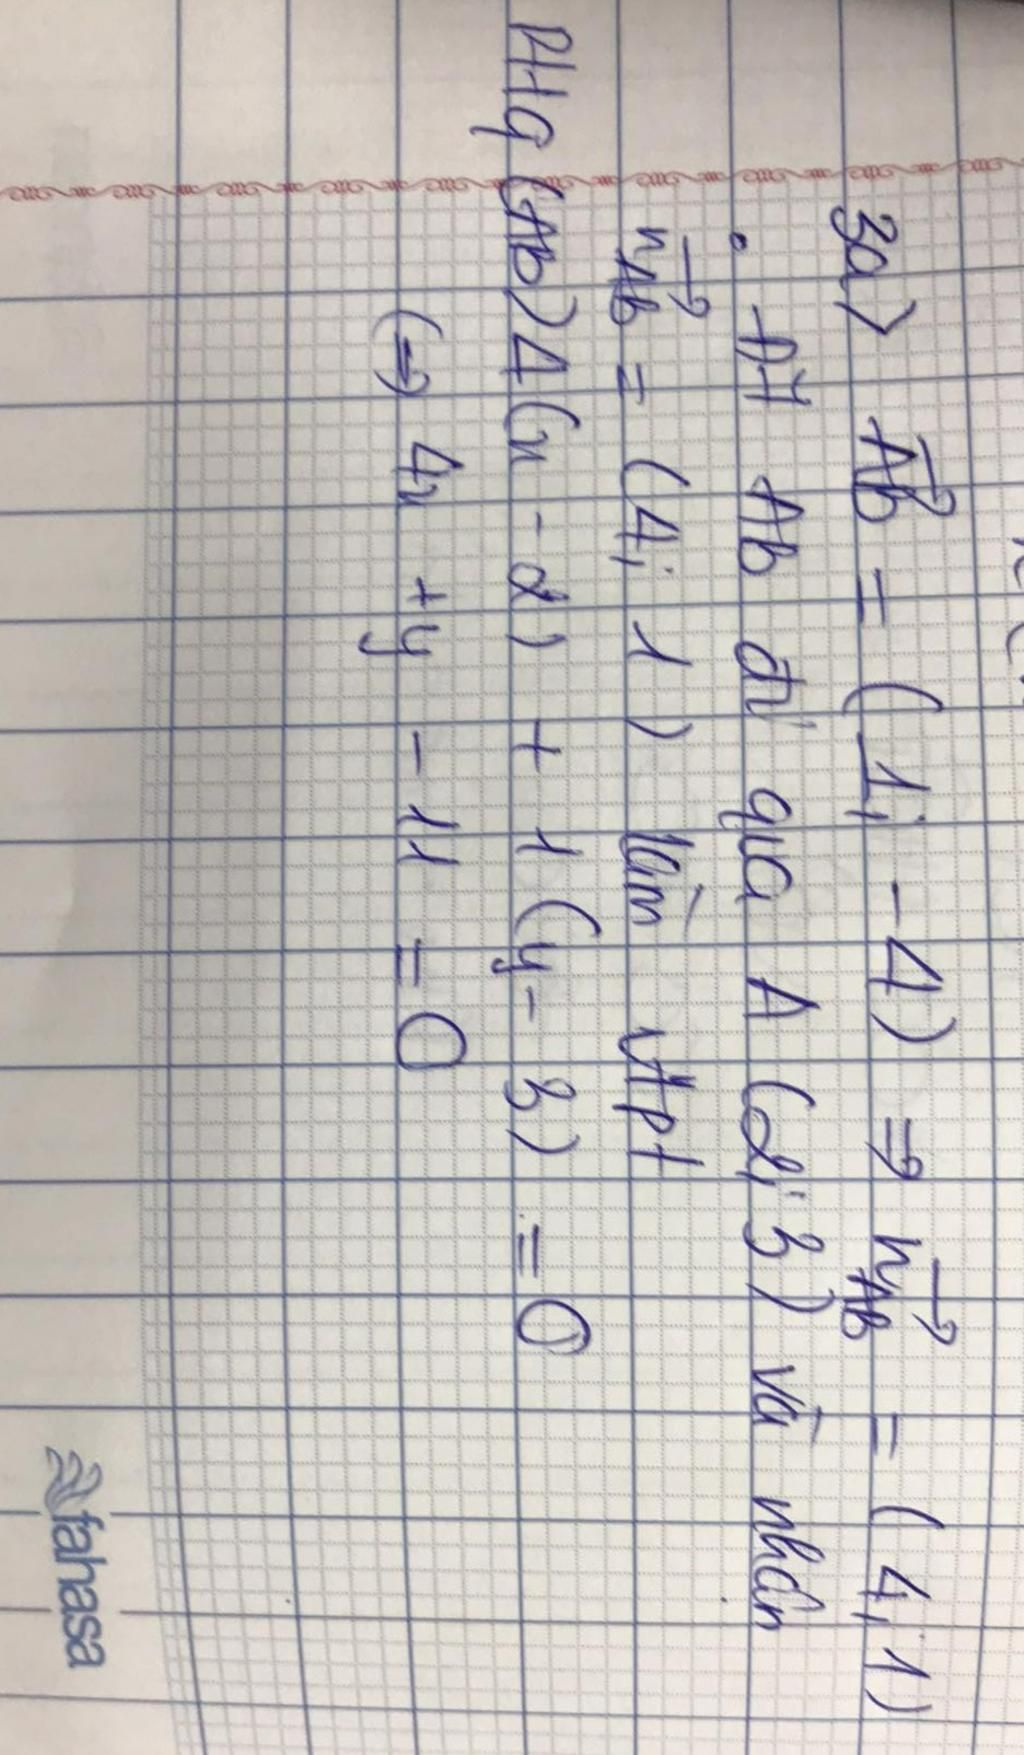 3a) AB→ = (1; -4) ⇒ n→AB = (4; 1)
• ĐT AB đi qua A (2; 3) và nhận
n→AB = (4; 1) làm vtpt
PTTQ (AB) 4(x - 2) + 1(y - 3) = 0
(⇒) 4x + y - 11 = 0
fahasa